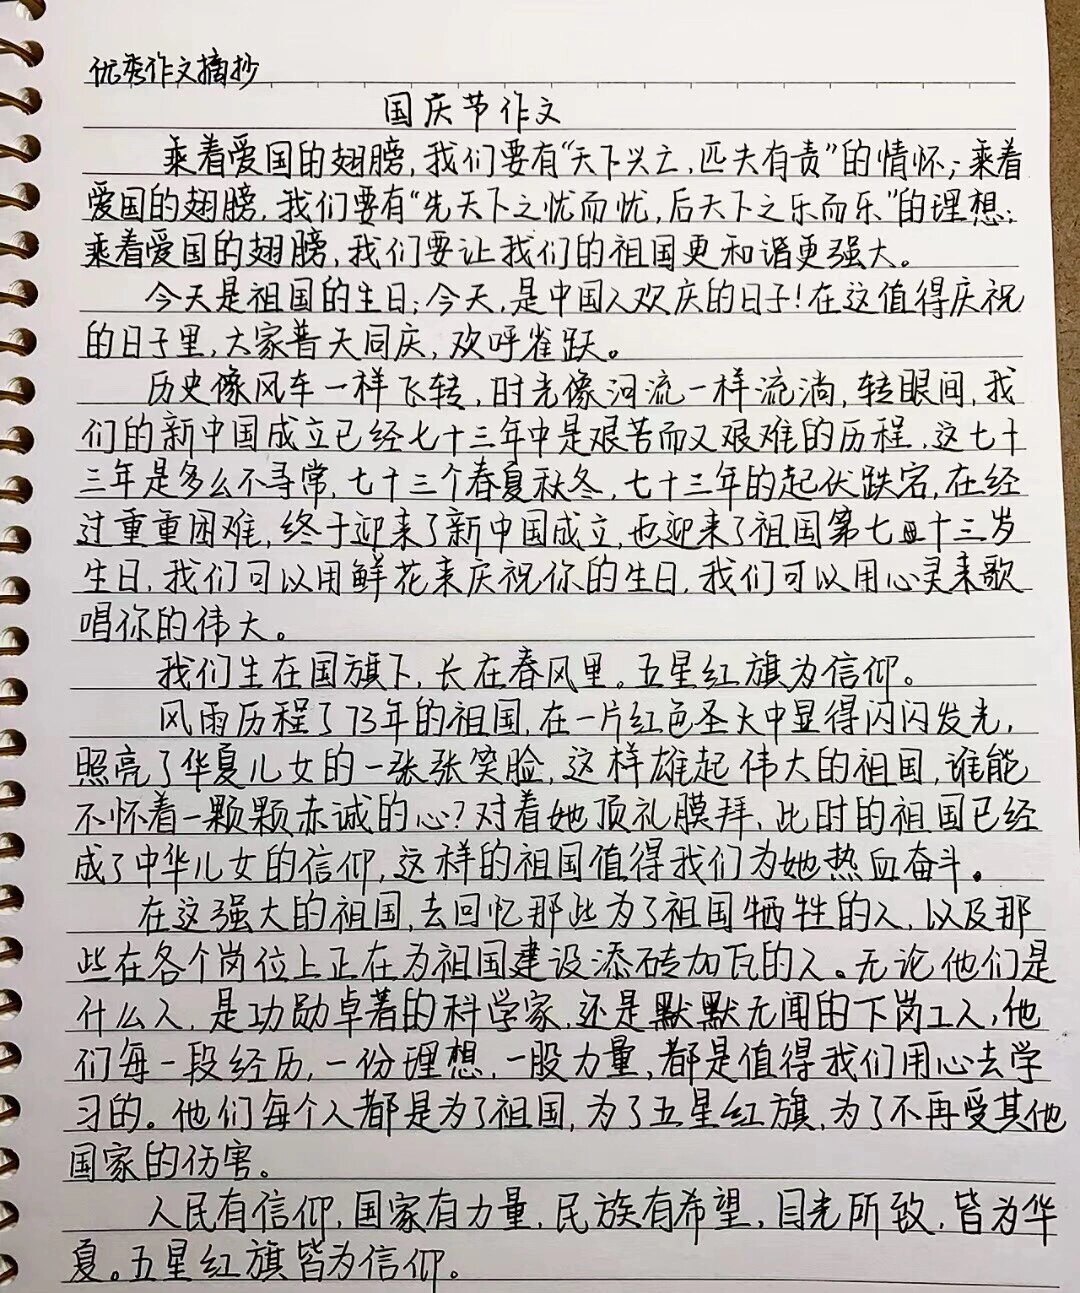 优秀作文摘抄
国庆节作文
乘着爱国的翅膀,我们要有“天下兴亡,匹夫有责”的情怀;乘着
爱国的翅膀,我们要有“先天下之忧而忧,后天下之乐而乐”的理想;
乘着爱国的翅膀,我们要让我们的祖国更和谐更强大。
今天是祖国的生日;今天,是中国人欢庆的日子!在这值得庆祝
的日子里,大家普天同庆,欢呼雀跃。
历史像风车一样飞转,时光像河流一样流淌,转眼间,我
们的新中国成立已经七十三年中是艰苦而又艰难的历程,这七十
三年是多么不寻常,七十三个春夏秋冬,七十三年的起伏跌宕,在经
过重重困难,终于迎来了新中国成立,也迎来了祖国第七十三岁
生日,我们可以用鲜花来庆祝你的生日,我们可以用心灵来歌
唱你的伟大。
我们生在国旗下,长在春风里。五星红旗为信仰。
风雨历程了73年的祖国,在一片红色圣天中显得闪闪发光,
照亮了华夏儿女的一张张笑脸,这样雄起伟大的祖国,谁能
不怀着一颗颗赤诚的心?对着她顶礼膜拜,此时的祖国已经
成了中华儿女的信仰,这样的祖国值得我们为她热血奋斗。
在这强大的祖国,去回忆那些为了祖国牺牲的人,以及那
些在各个岗位上正在为祖国建设添砖加瓦的人。无论他们是
什么人,是功勋卓著的科学家,还是默默无闻的下岗工人,他
们每一段经历,一份理想,一股力量,都是值得我们用心去学
习的。他们每个人都是为了祖国,为了五星红旗,为了不再受其他
国家的伤害。
人民有信仰,国家有力量,民族有希望,目光所致,皆为华
夏。五星红旗皆为信仰。